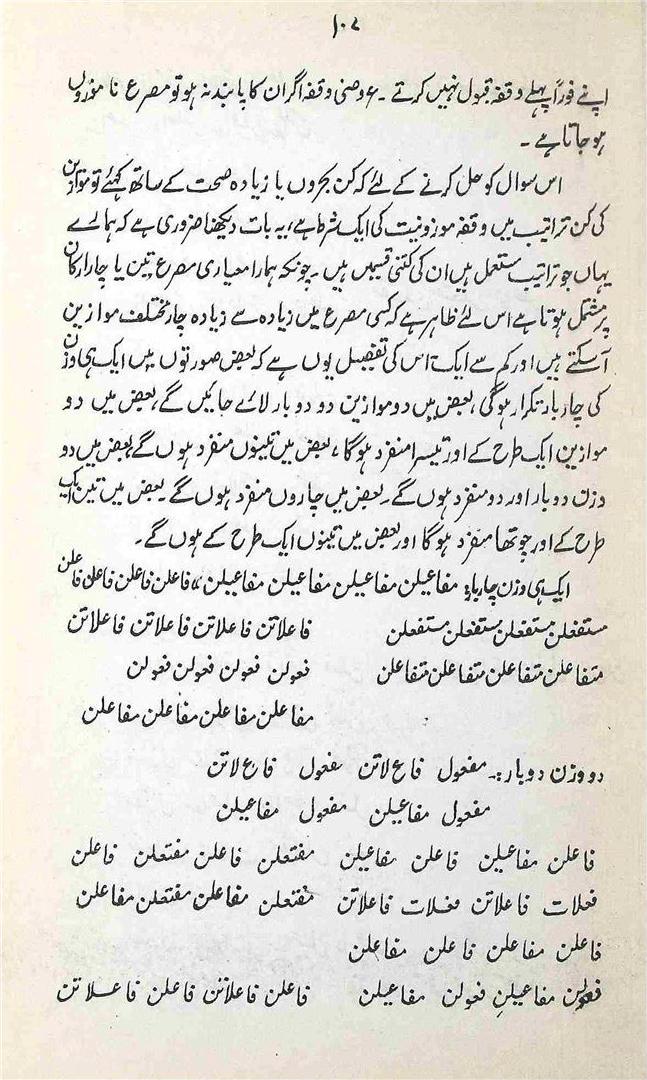 ۱۰۷
اپنے فوراً پہلے وقفہ قبول نہیں کرتے ۔ عروضی وقفہ اگر ان کا پابند نہ ہو تو مصرع نا موزوں
ہو جاتا ہے ۔
اس سوال کو حل کرنے کے لئے کہ کن بحروں یا زیادہ صحت کے ساتھ کہئے تو موازین
کی کن تراتیب میں وقفہ موزونیت کی ایک شرط ہے ، یہ بات دیکھنا ضروری ہے کہ ہمارے
یہاں جو تراتیب مستعمل ہیں ان کی کتنی قسمیں ہیں ۔ چونکہ ہمارا معیاری مصرع تین یا چار ارکان
پر مشتمل ہوتا ہے اس لئے ظاہر ہے کہ کسی مصرع میں زیادہ سے زیادہ چار مختلف موازین
آ سکتے ہیں اور کم سے ایک ۔ اس کی تفصیل یوں ہے کہ بعض صورتوں میں ایک ہی وزن
کی چار بار تکرار ہوگی ، بعض میں دو موازین دو دو بار لائے جائیں گے ، بعض میں دو
موازین ایک طرح کے اور تیسرا منفرد ہوگا ، بعض میں تینوں منفرد ہوں گے ، بعض میں دو
وزن دو بار اور دو منفرد ہوں گے ۔ بعض میں چاروں منفرد ہوں گے ۔ بعض میں تین ایک
طرح کے اور چوتھا منفرد ہوگا اور بعض میں تینوں ایک طرح کے ہوں گے ۔
ایک ہی وزن چار بار : مفاعیلن مفاعیلن مفاعیلن مفاعیلن ، فاعلن فاعلن فاعلن فاعلن
مستفعلن مستفعلن مستفعلن مستفعلن فاعلاتن فاعلاتن فاعلاتن فاعلاتن
متفاعلن متفاعلن متفاعلن متفاعلن فعولن فعولن فعولن فعولن
مفاعلن مفاعلن مفاعلن مفاعلن
دو وزن دو بار :۔ مفعول فاع لاتن مفعول فاع لاتن
مفعول مفاعیلن مفعول مفاعیلن
فاعلن مفاعیلن فاعلن مفاعیلن مفتعلن فاعلن مفتعلن فاعلن
فعلات فاعلاتن فعلات فاعلاتن مفتعلن مفاعلن مفتعلن مفاعلن
فاعلن مفاعلن فاعلن مفاعلن
فعولن مفاعیلن فعولن مفاعیلن فاعلن فاعلاتن فاعلن فاعلاتن